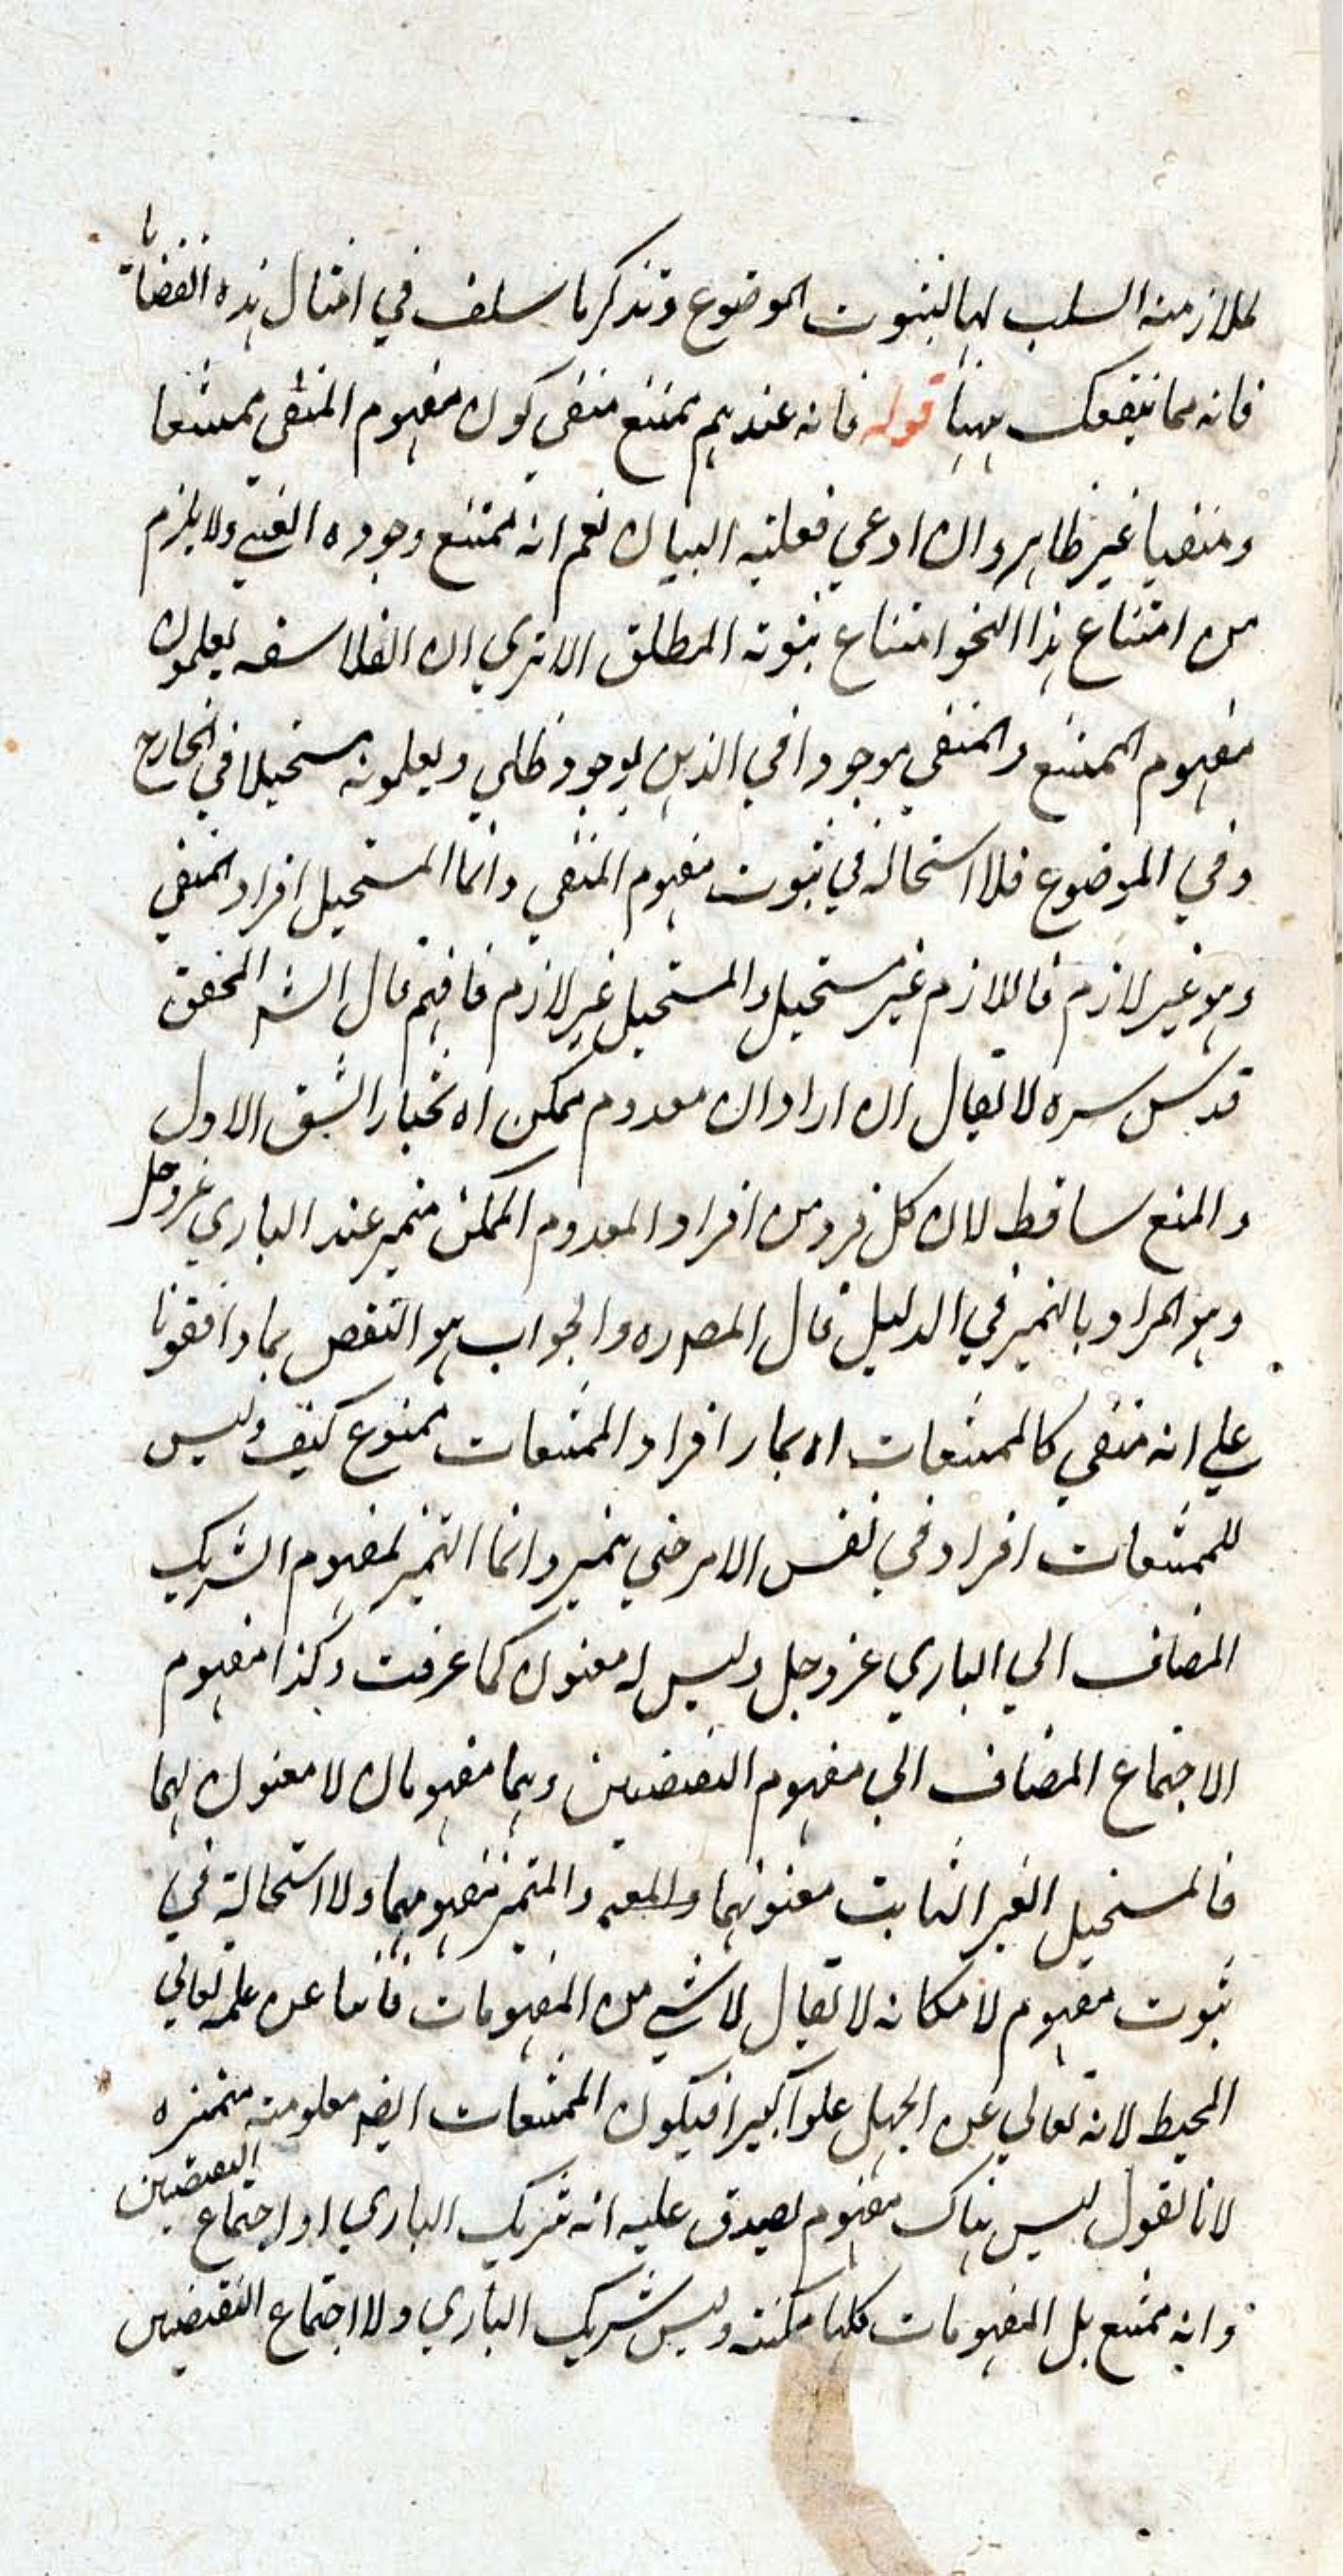 لملازمة السلب لها لثبوت الموضوع وتذكر ما سلف في امثال هذه القضايا
فانه مما ينفعك ههنا قوله فانه عندهم ممتنع منفي كون مفهوم المنفي ممتنعا
ومنفيا غير ظاهر وان ادعي فعليه البيان نعم انه ممتنع وجوده العيني ولا يلزم
من امتناع هذا النحو امتناع ثبوته المطلق الا تري ان الفلاسفه يجعلون
مفهوم الممتنع والمنفي موجودا في الذهن بوجود ظلي ويجعلونه مستحيلا في الخارج
وفي الموضوع فلا استحالة في ثبوت مفهوم المنفي وانما المستحيل افراد المنفي
وهو غير لازم فاللازم غير مستحيل والمستحيل غير لازم فافهم قال الشه المحقق
قدس سره لا يقال ان اراد ان معدوم ممكن اه نختار الشق الاول
والمنع ساقط لان كل فرد من افراد المعدوم الممكن متميز عند الباري عز وجل
وهو المراد بالتميز في الدليل قال المصه ره والجواب هو النقض بما وافقونا
علي انه منفي كالممتنعات اه تمايز افراد الممتنعات ممنوع كيف وليس
للممتنعات افراد في نفس الامر حتي يتميز وانما التميز لمفهوم الشريك
المضاف الي الباري عز وجل وليس له معنون كما عرفت وكذا مفهوم
الاجتماع المضاف الي مفهوم النقيضين وهما مفهومان لا معنون لهما
فالمستحيل الغير الثابت معنونهما والمتميز مفهومهما ولا استحالة في
ثبوت مفهوم لامكانه لا يقال لا شي من المفهومات غائبا عن علمه تعالي
المحيط لانه تعالي عن الجهل علوا كبيرا فيكون الممتنعات ايضه معلومة متميزه
لانا نقول ليس هناك مفهوم يصدق عليه انه شريك الباري او اجتماع النقيضين
وانه ممتنع بل المفهومات كلها ممكنة وليس شريك الباري ولا اجتماع النقيضين